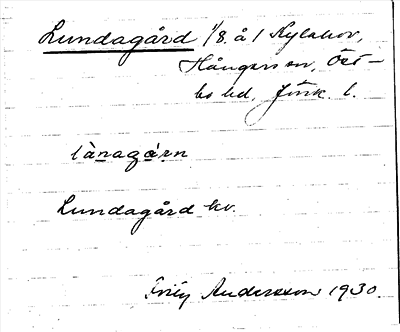 Lundagård 1/8 å 1 Kylahov,
Hångers sn, Öst-
bo hd, Jönk. l.
lànagárn
Lundagård kv.
Andersson 1930